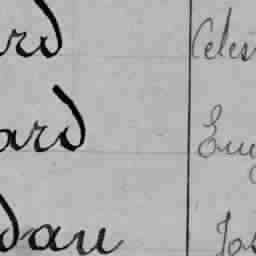 ard Celes
ard Eug
dau Jos